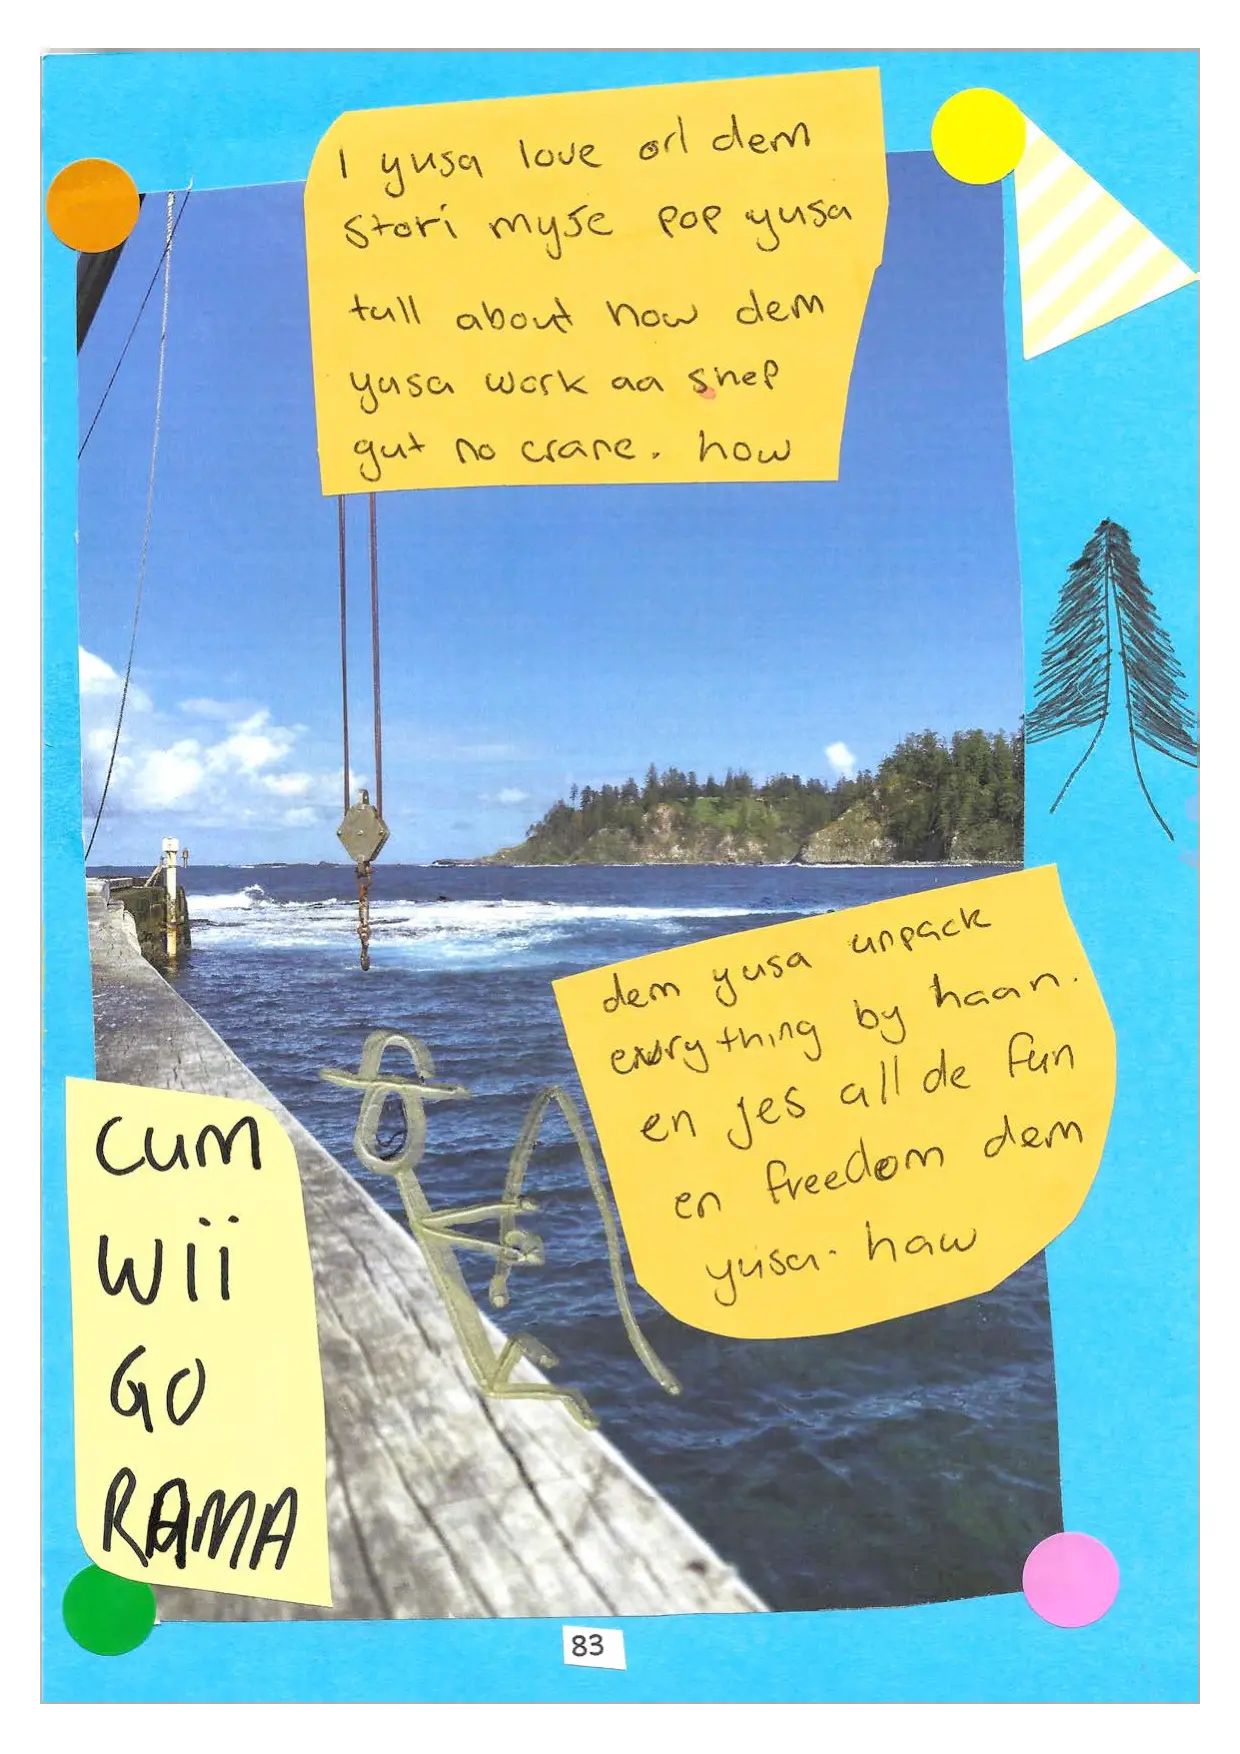 I yusa love orl dem
stori myse pop yusa
tull about how dem
yusa work aa shep
gut no crane. how
dem yusa unpack
everything by haan.
en jes all de fun
en freedom dem
yusa. haw
CUM
WII
GO
RAMA
83